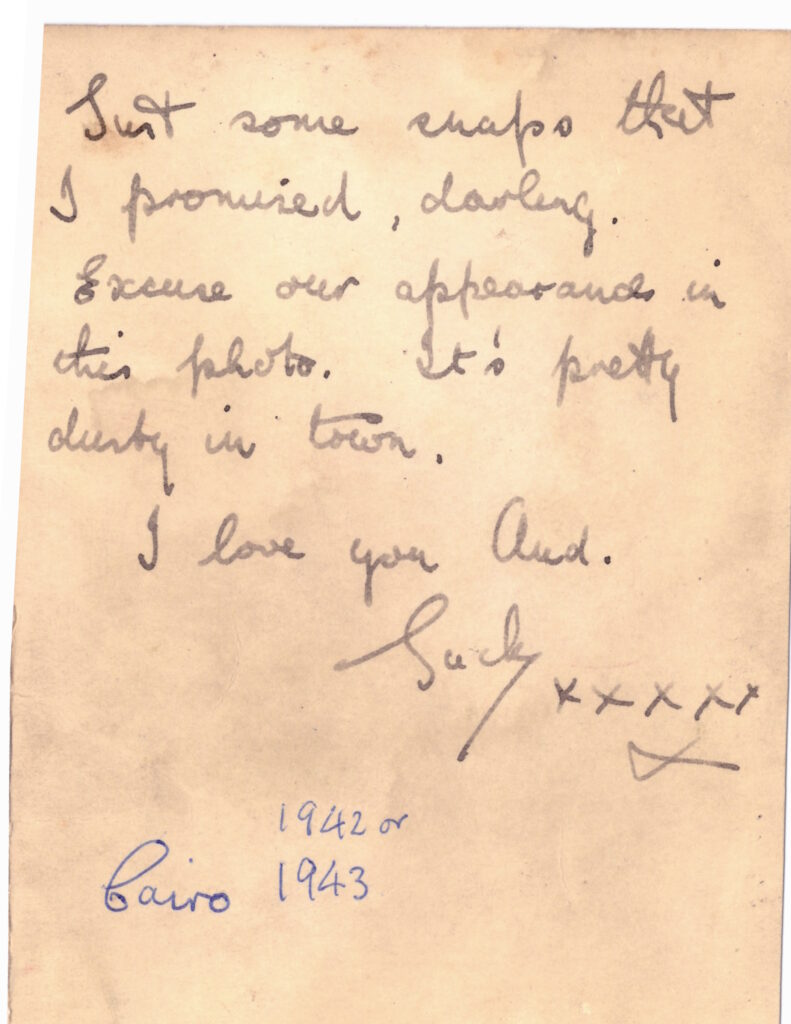 Just some snaps that
I promised, darling.
Excuse our appearance in
this photo. It's pretty
dusty in town.
I love you Aud.
xxxxx
1942 or
Cairo 1943